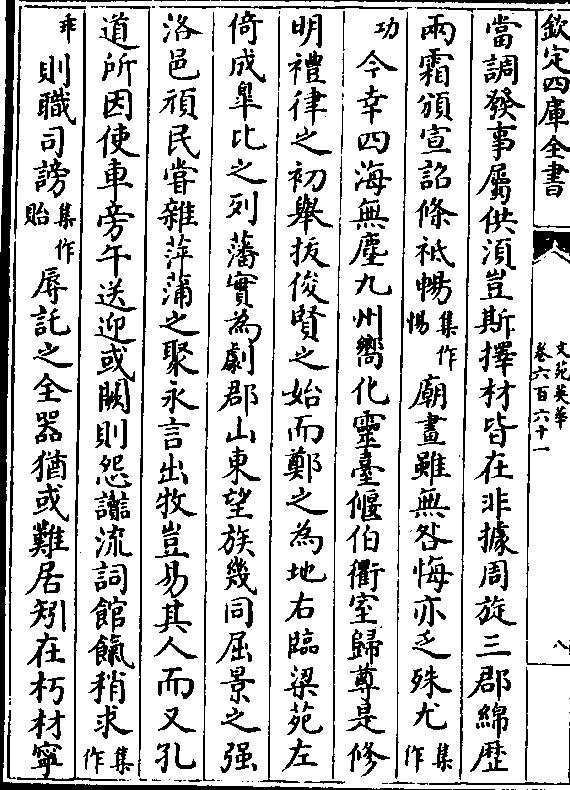 欽定四庫全書
文苑英華
卷六百六十一
八
當調發事屬供須豈斯擇材皆在非據周旋三郡綿歷
兩霜頒宣詔條祗暢集作惕廟畫雖無咎悔亦乏殊尤集作
功今幸四海無塵九州嚮化靈臺偃伯衢室歸尊是修
明禮律之初舉拔俊賢之始而鄭之為地右臨梁苑左
倚成臯比之列藩實為劇郡山東望族幾同屈景之强
洛邑頑民嘗雜萍蒲之聚永言出牧豈易其人而又孔
道所因使車旁午送迎或闕則怨讟流詞館餼稍求集作
乖則職司謗集作貽辱託之全器猶或難居矧在朽材寧